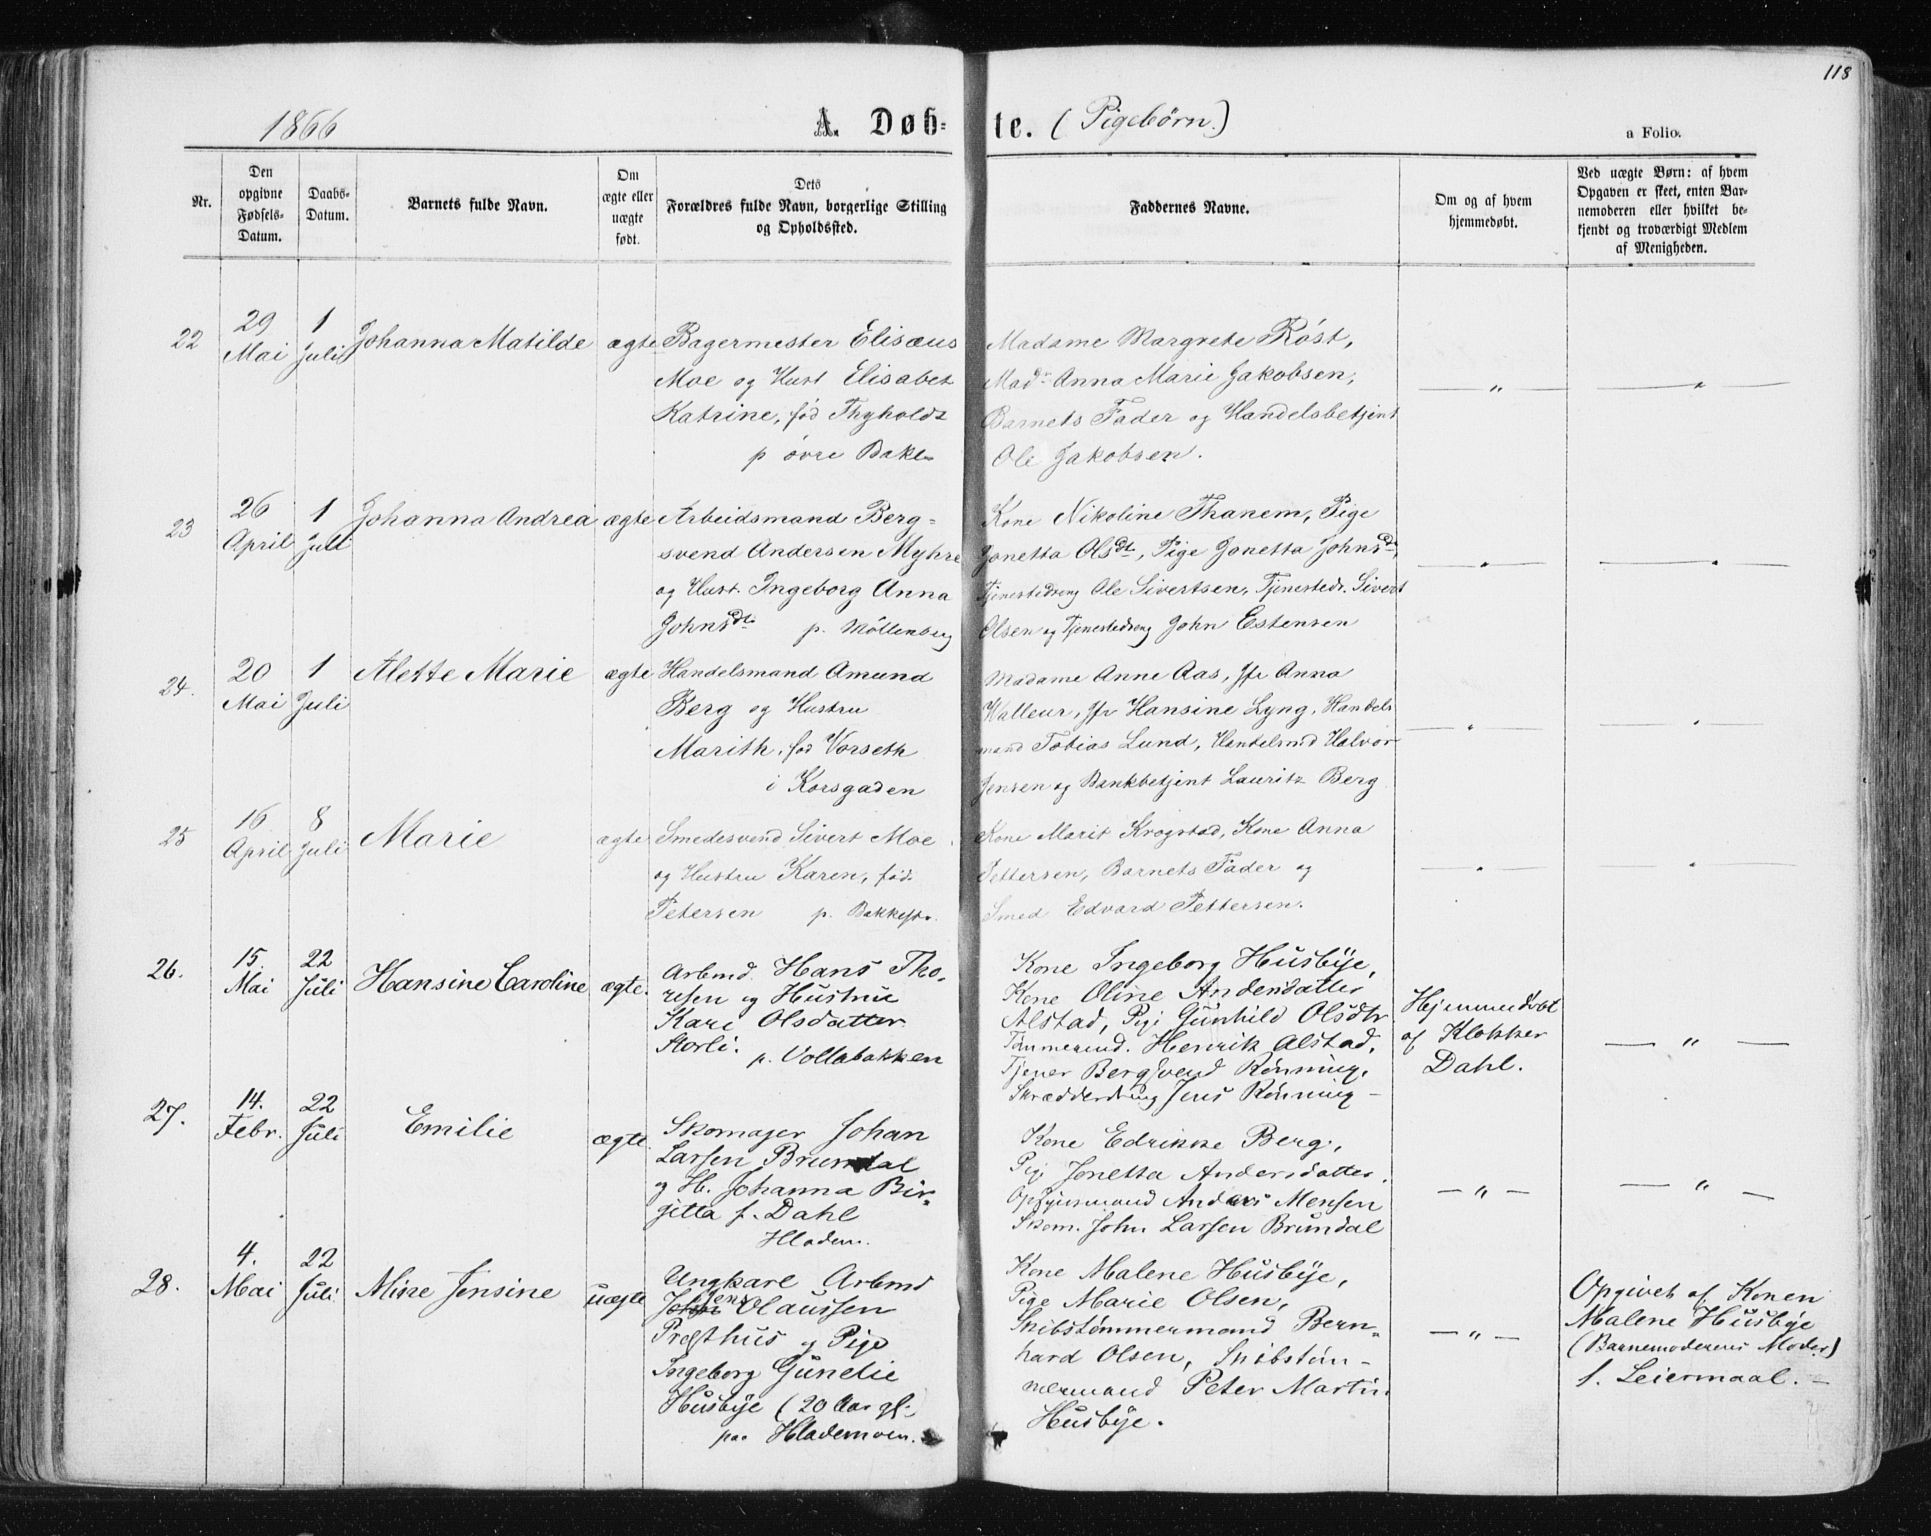 118
1866 A. Døb- te. (Pigebørn.)
a Folio.
Nr.
Den
opgivne
Fødsels-
Datum.
Daabs-
Datum.
Barnets fulde Navn.
Om
ægte eller
uægte
født.
Dets
Forældres fulde Navn, borgerlige Stilling
og Opholdssted.
Faddernes Navne.
Om og af hvem
hjemmedøbt.
Ved uægte Børn: af hvem
Opgaven er skeet, enten Bar-
nemoderen eller hvilket be-
kjendt og troværdigt Medlem
af Menigheden.
22
29
Mai
1
Juli
Johanna Matilde
ægte
Bagermester Elisæus
Moe og Hust Elisabet
Katrine, fød Thyholdt
p øvre Bakl.
Madame Margrete Røst,
Madᵐ Anna Marie Jakobsen,
Barnets Fader og Handelsbetjent
Ole Jakobsen.
— " —
— " —
23
26
April
1
Juli
Johanna Andrea
ægte
Arbeidsmand Berg-
svend Andersen Myhre
og Hust. Ingeborg Anna
Johnsdt. p. Möllenberg
Kone Nikoline Thanem, Pige
Jonetta Olsdt, Pige Jonetta Johnsdt,
Tjenestedreng Ole Sivertsen, Tjenestedr. Sivert
Olsen og Tjenestedreng John Estensen
— " —
— " —
24.
20
Mai
1
Juli
Alette Marie
ægte
Handelsmand Amund
Berg og Hustru
Marith, fød Vorseth
i Korsgaden
Madame Anne Aas, Jfr Anna
Walleur, Jfr Hansine Lyng, Handels
mand Tobias Lund, Handelsmd Halvor
Jensen og Bankbetjent Lauritz Berg
— " —
— " —
25
16
April
8
Juli
Marie
ægte
Smedesvend Sivert Moe
og Hustru Karen, fød
Petersen p. Bakkestr.
Kone Marit Krogstad, Kone Anna
Pettersen, Barnets Fader og
Smed Edvard Pettersen.
— " —
— " —
26.
15.
Mai
22
Juli
Hansine Caroline
ægte.
Arbmd. Hans Tho-
resen og Hustru
Kari Olsdatter
Storli. p. Vollabakken
Kone Ingeborg Husbÿe,
Kone Oline Andersdatter
Alstad, Pige Gunhild Olsdtr
Tømmermd. Henrik Alstad,
Tjener Bergsvend Rønning,
Skrædderdreng Jens Rønning –
Hjemmedøbt
af Klokker
Dahl.
— " —
27.
14.
Febr.
22
Juli
Emilie
ægte
Skomager Johan
Larsen Brundal
og H. Johanna Bir-
gitta f. Dahl
Hladem.
Kone Edrikke Berg,
Pige Jonetta Andersdatter,
Opsynsmand Anders Mensen
Skom. John Larsen Brundal
— " —
— " —
28.
4.
Mai
22
Juli
Mine Jensine
uægte
Ungkarl Arbmd
Jens Olaussen
Præsthus og Pige
Ingeborg Gunelie
Husbÿe (20 Aar gl.
paa Hlademoen.
Kone Malene Husbÿe,
Pige Marie Olsen,
Skibstømmermand Bern-
hard Olsen, Skibstøm-
mermand Peter Martin
Husbÿe.
— " —
Opgivet af Konen
Malene Husbÿe
(Barnemoderens Moder)
f. Leiermaal. –